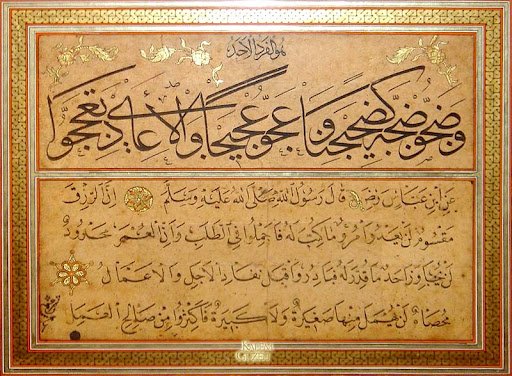 هو الفرد الاحد
وضجوا ضجة كضجيجنا وعجوا عجيجا والاعادي
عن ابن عباس رض قال رسول الله صلى الله عليه وسلم ان الرزق
مقسوم لن يعدو امرؤ ما كتب له فاجملوا في الطلب وان العمر محدود
لن يجاوز احد ما قدر له فبادروا قبل نفاد الاجل والاعمال
محصاة لن يهمل منها صغيرة ولا كبيرة فاكثروا من صالح العمل
KALEM
GUZELI